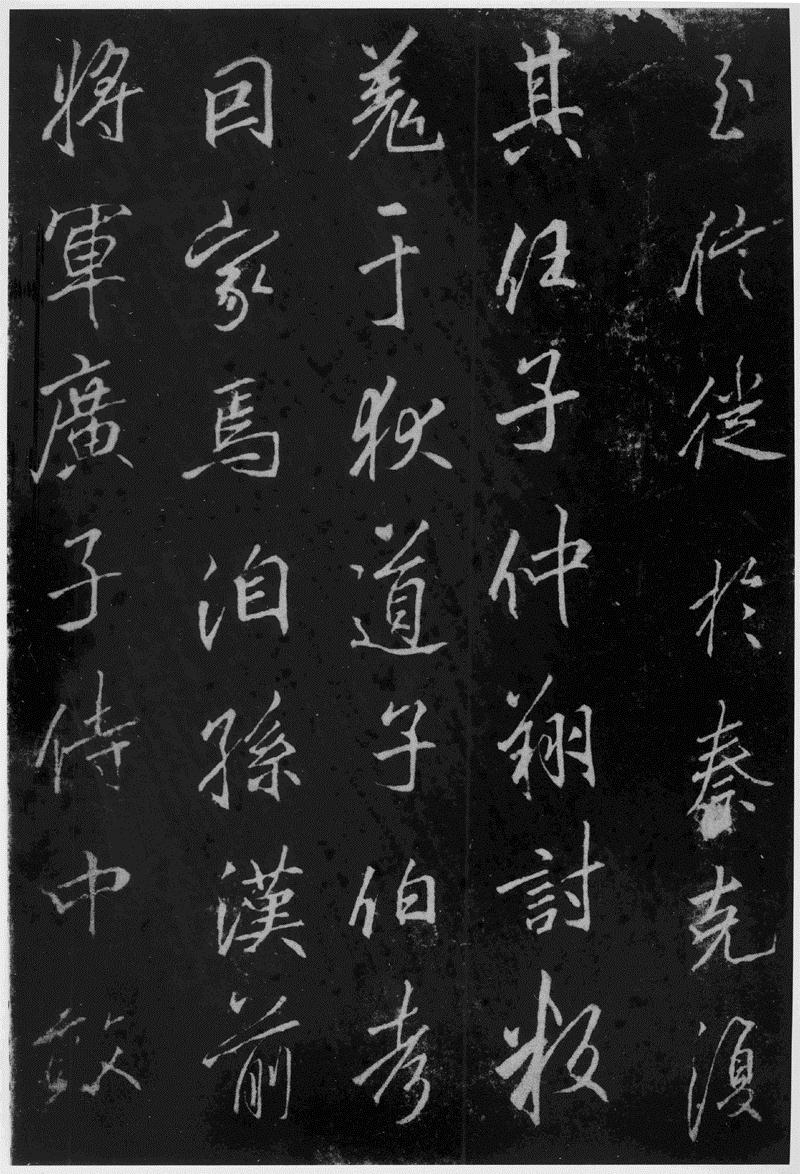 至信徙於秦克復
其任子仲翔討叛
羌于狄道子伯考
因家焉洎孫漢前
將軍廣子侍中敢